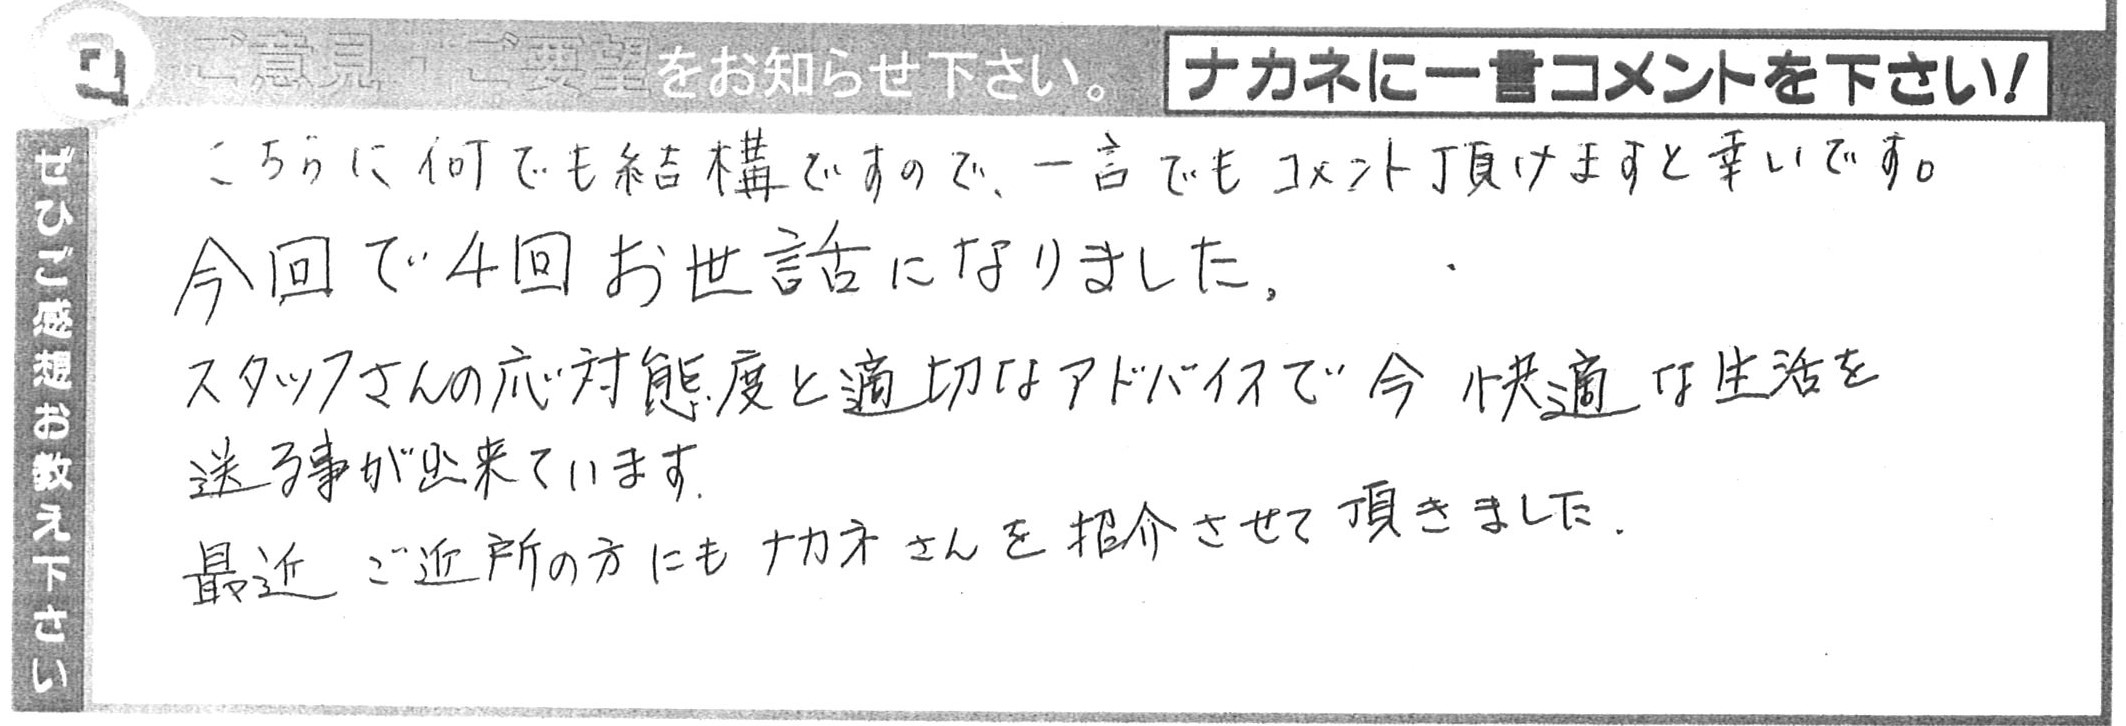 ご意見・ご要望をお知らせ下さい。 ナカネに一言コメントを下さい!
ぜひご感想お教え下さい
こちらに何でも結構ですので、一言でもコメント頂けますと幸いです。
今回で4回お世話になりました。
スタッフさんの応対態度と適切なアドバイスで今 快適な生活を
送る事が出来ています.
最近 ご近所の方にもナカネさんを紹介させて頂きました.